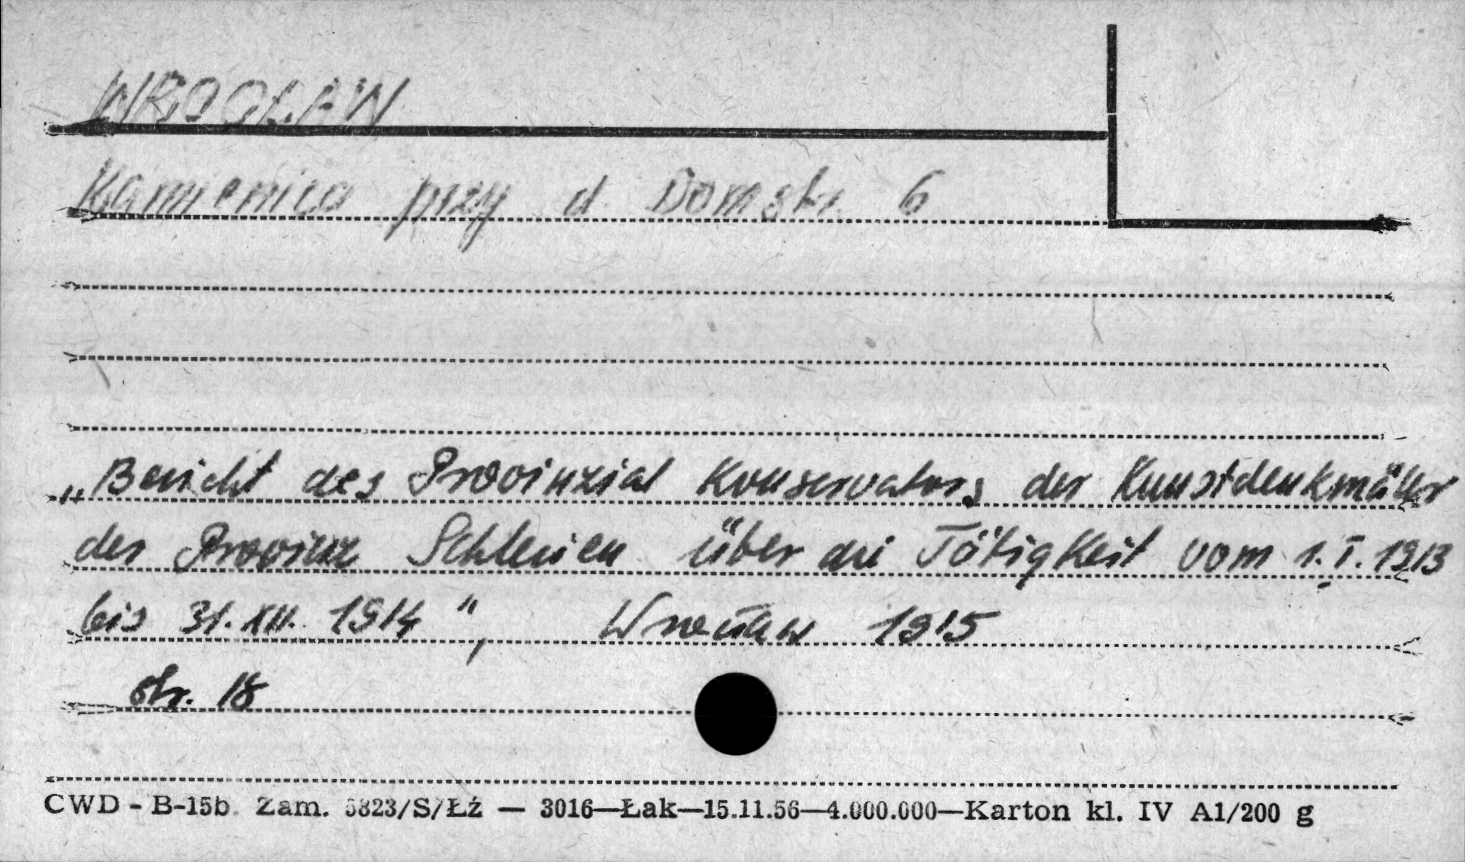 WROCŁAW
Kamienica przy d. Domstr. 6
„Bericht des Provinzial Konservators der Kunstdenkmäller
der Provinz Schlesien über die Tätigkeit vom 1. I. 1913
bis 31. XII. 1914", Wrocław 1915
str. 18
CWD - B-15b. Zam. 5823/S/Łź — 3016—Łak—15.11.56—4.000.000—Karton kl. IV A1/200 g